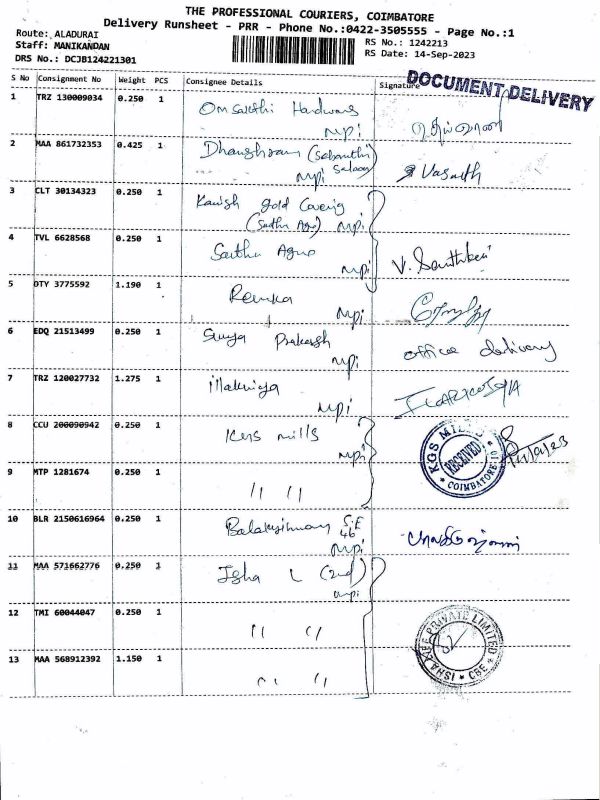 THE PROFESSIONAL COURIERS, COIMBATORE
Delivery Runsheet - PRR - Phone No.:0422-3505555 - Page No.:1
Route: ALADURAI
Staff: MANIKANDAN
DRS No.: DCJB124221301
RS No.: 1242213
RS Date: 14-Sep-2023
DOCUMENT DELIVERY
S No Consignment No Weight PCS Consignee Details Signature
1 TRZ 130009034 0.250 1 Hardwares
mpi
2 MAA 861732353 0.425 1 Vasanth
mpi Saloon
3 CLT 30134323 0.250 1 gold Covering
mpi
4 TVL 6628568 0.250 1
mpi
5 DTY 3775592 1.190 1 Renuka
mpi
6 EDQ 21513499 0.250 1 Surya Prakash office delivery
mpi
7 TRZ 120027732 1.275 1
mpi
8 CCU 200090942 0.250 1 KGS mills
mpi
KGS MILLS RECEIVED COIMBATORE-10
9 MTP 1281674 0.250 1 11 11
10 BLR 2150616964 0.250 1
mpi
11 MAA 571662776 0.250 1 Isha L (2nd)
mpi
12 TMI 60044047 0.250 1 11 11
ISHA LIFE PRIVATE LIMITED CBE
13 MAA 568912392 1.150 1 11 11